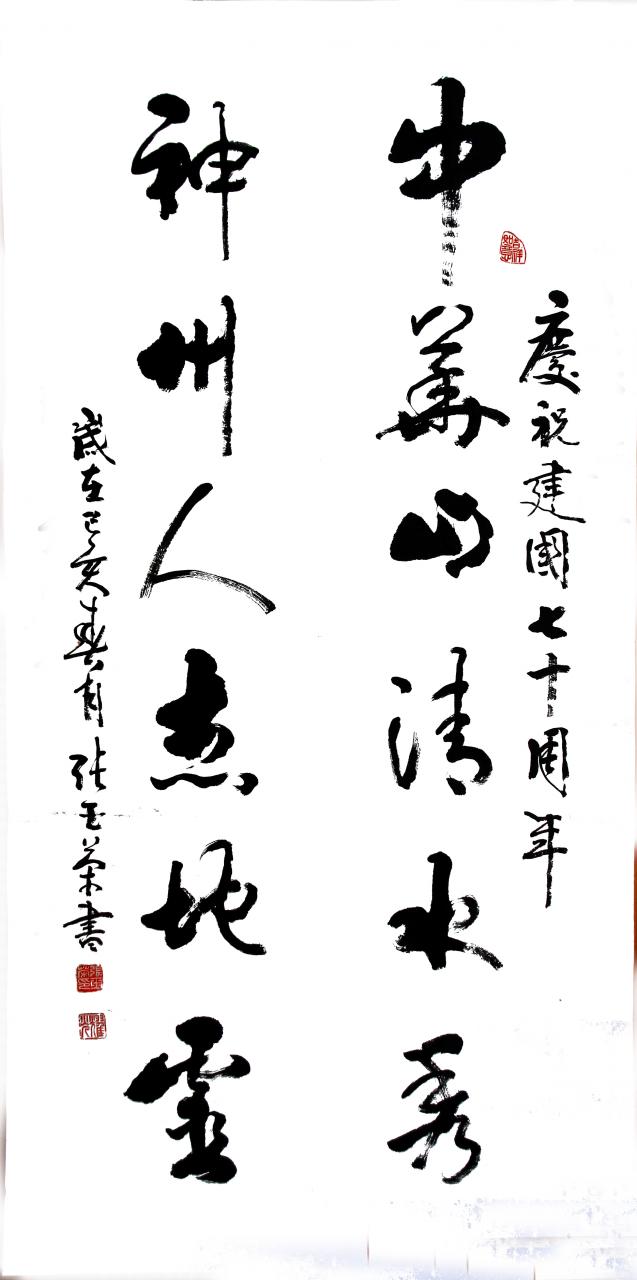 慶祝建國七十周年
中華山清水秀
神州人杰地靈
歲在己亥春月張玉榮書